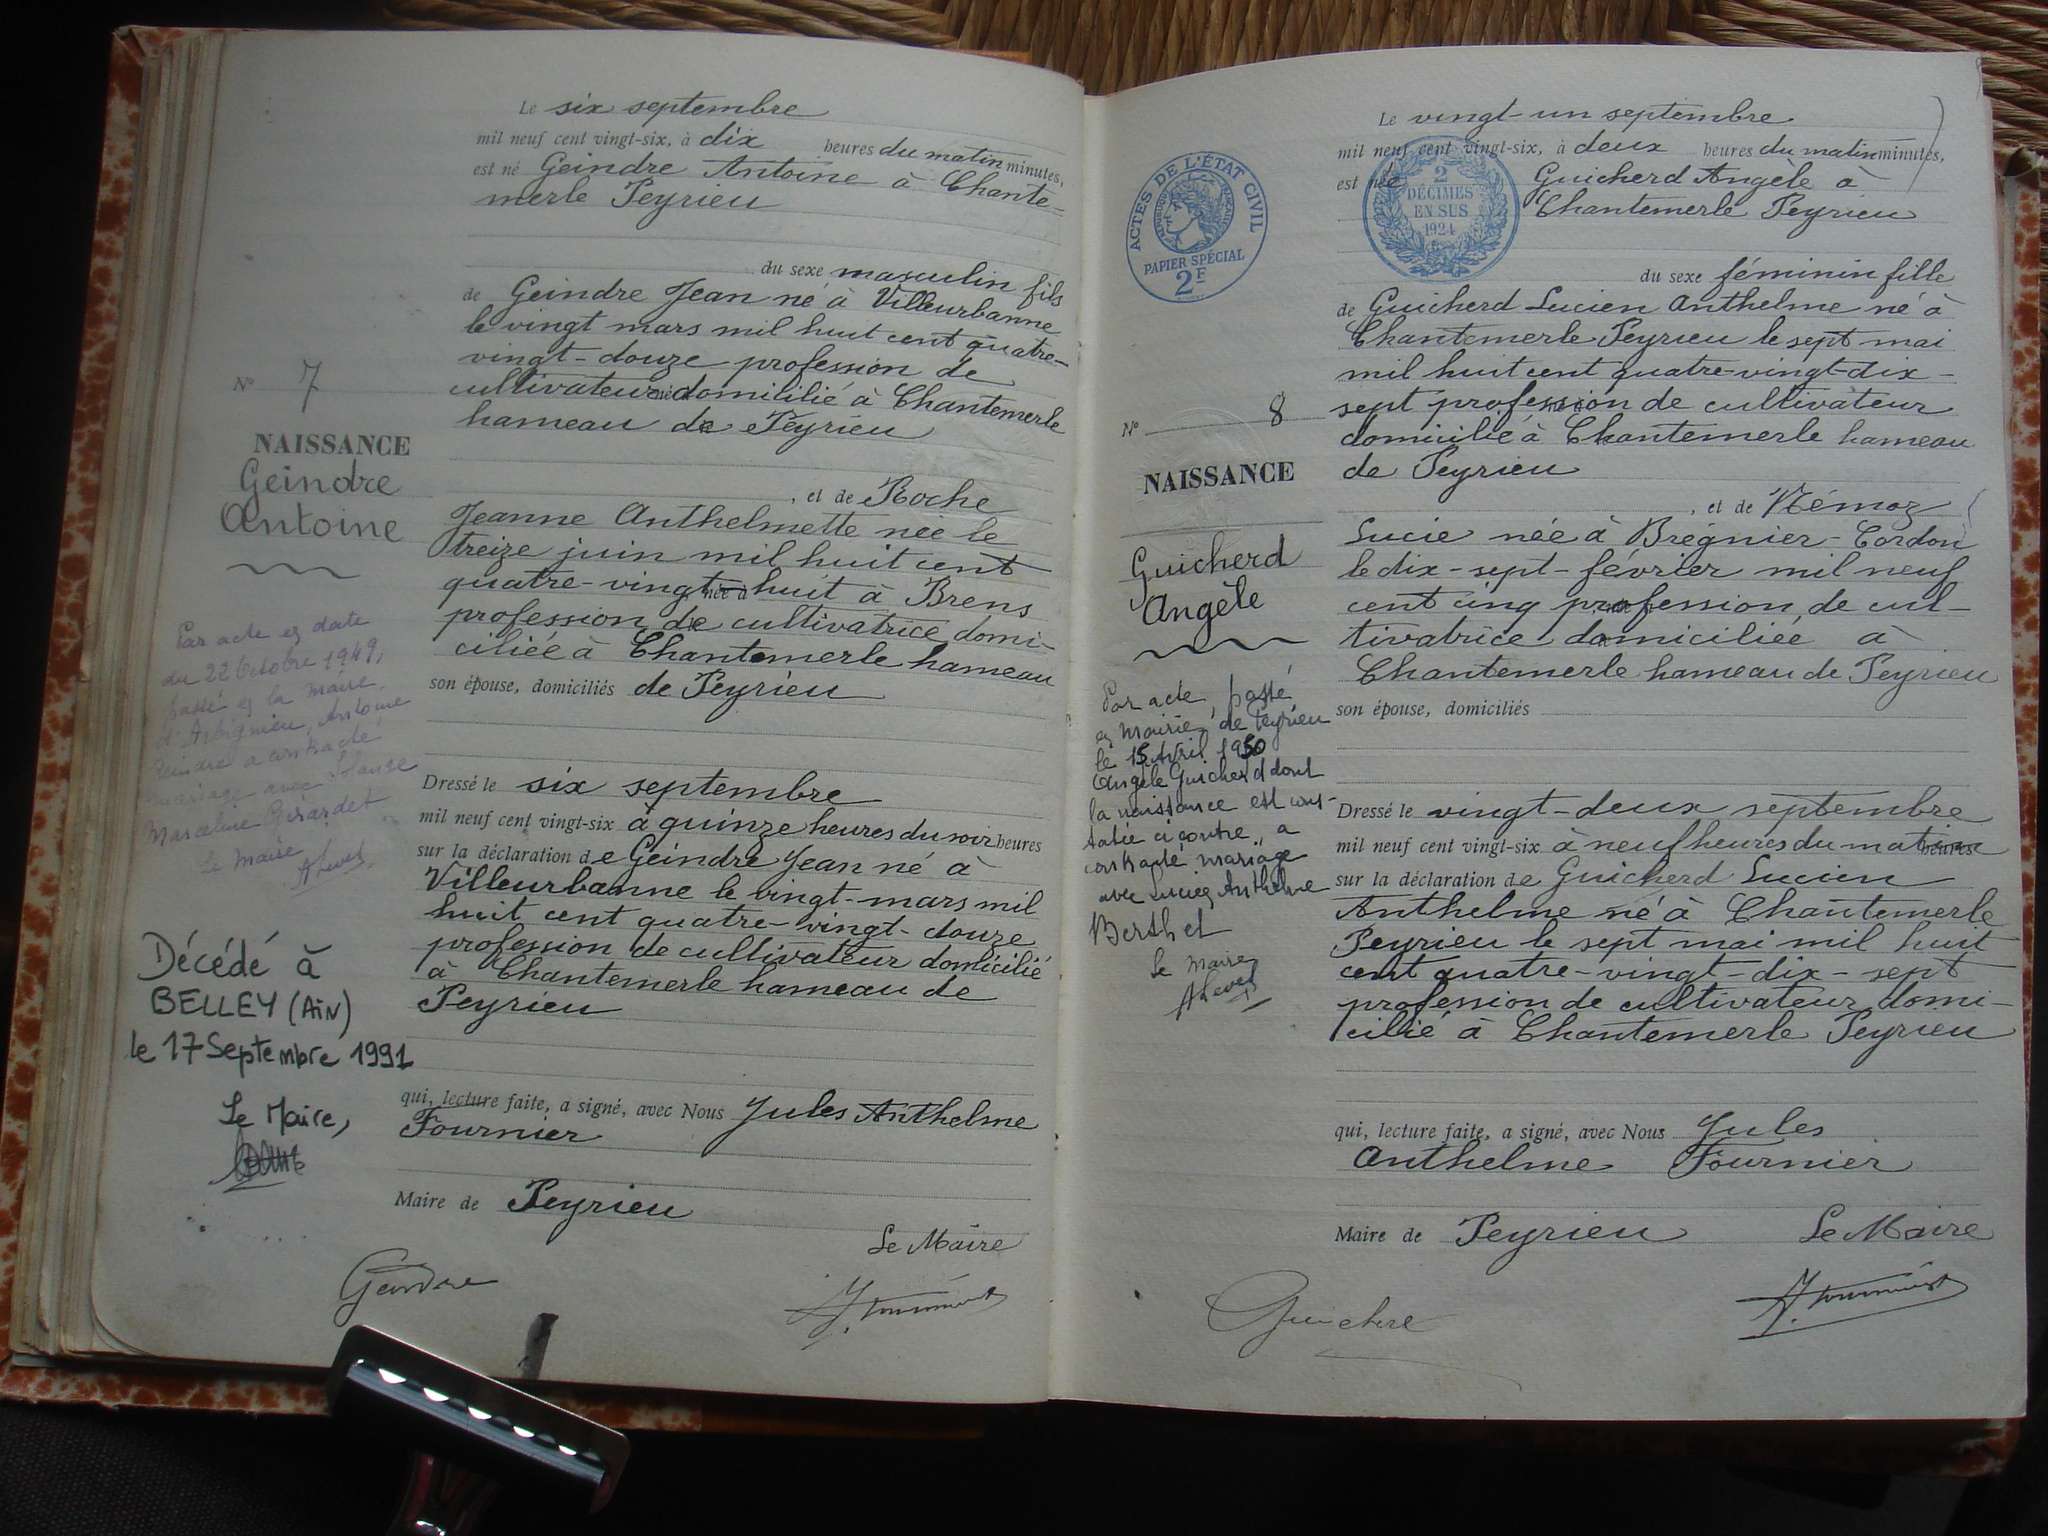 Le six septembre
mil neuf cent vingt-six, à dix heures du matin minutes,
est né Geindre Antoine à Chante=
merle Peyrieu
du sexe masculin fils
de Geindre Jean né à Villeurbanne
le vingt mars mil huit cent quatre-
vingt-douze profession de
cultivateur domililié à Chantemerle
hameau de Peyrieu
, et de Roche
Jeanne Anthelmette née le
treize juin mil huit cent
quatre-vingt-huit à Brens
profession de cultivatrice domi-
ciliée à Chantemerle hameau
son épouse, domiciliés de Peyrieu
Dressé le six septembre
mil neuf cent vingt-six à quinze heures du soir heures
sur la déclaration de Geindre Jean né à
Villeurbanne le vingt-mars mil
huit cent quatre-vingt-douze
profession de cultivateur domicilié
à Chantemerle hameau de
Peyrieu
qui, lecture faite, a signé, avec Nous Jules Anthelme
Fournier
Maire de Peyrieu
Le Maire
Geindre
N° 7
NAISSANCE
Geindre
Antoine
Par acte en date
du 22 Octobre 1949,
passé en la mairie
d'Arbignieu, Antoine
Geindre a contracté
mariage avec Solange
Marceline Girardet
Le Maire
Décédé à
BELLEY (AIN)
le 17 Septembre 1991
Le Maire,
ACTES DE L'ÉTAT CIVIL
PAPIER SPÉCIAL
2F
2
DÉCIMES
EN SUS
1924
Le vingt-un septembre
mil neuf cent vingt-six, à deux heures du matin minutes,
est née Guicherd Angèle à
Chantemerle Peyrieu
du sexe féminin fille
de Guicherd Lucien Anthelme né à
Chantemerle Peyrieu le sept mai
mil huit cent quatre-vingt-dix-
sept profession de cultivateur
domicilié à Chantemerle hameau
de Peyrieu
, et de Némoz
Lucie née à Brégnier-Cordon
le dix-sept-février mil neuf
cent cinq profession de cul-
tivatrice domiciliée à
Chantemerle hameau de Peyrieu
son épouse, domiciliés
Dressé le vingt-deux septembre
mil neuf cent vingt-six à neuf heures du matin heures
sur la déclaration de Guicherd Lucien
Anthelme né à Chantemerle
Peyrieu le sept mai mil huit
cent quatre-vingt-dix-sept
profession de cultivateur domi-
cilié à Chantemerle Peyrieu
qui, lecture faite, a signé, avec Nous Jules
Anthelme Fournier
Maire de Peyrieu Le Maire
N° 8
NAISSANCE
Guicherd
Angèle
Par acte, passé
en Mairie, de Peyrieu
le 15 Avril 1950
Angèle Guicherd dont
la naissance est cons-
tatée ci contre, a
contracté mariage
avec Lucien Anthelme
Berthet
Le Maire